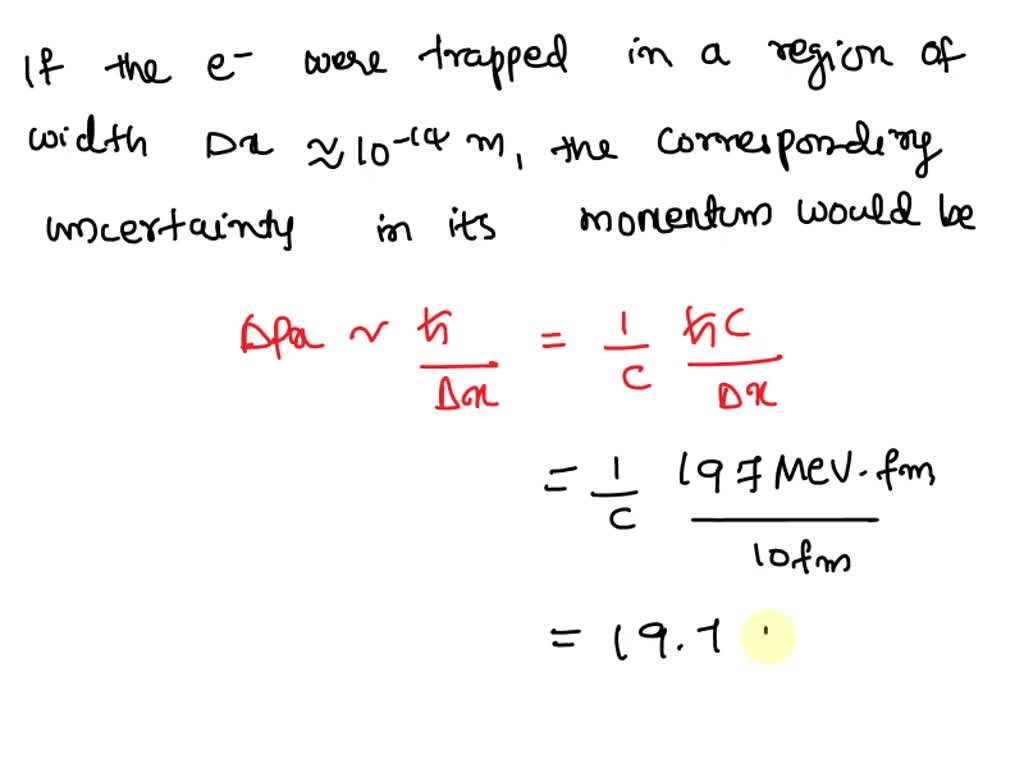 If the e⁻ were trapped in a region of
width Δx ≈ 10⁻¹⁴ m, the corresponding
uncertainty in its momentum would be
Δpx ~ ħ/Δx = 1/c ħc/Δx
= 1/c 197 MeV·fm/10fm
= 19.7